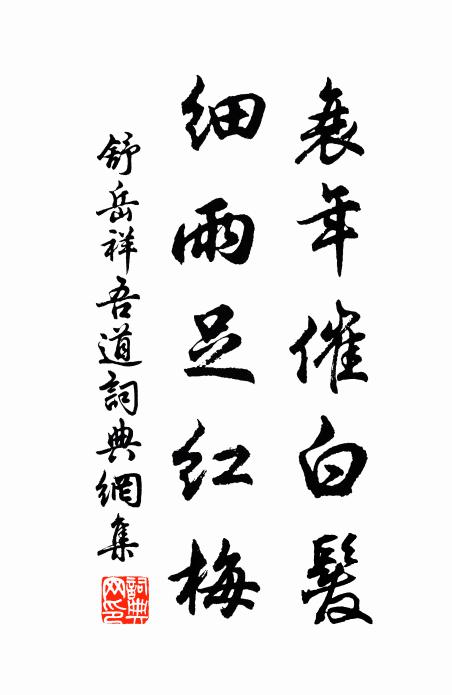 衰年催白髮
細雨足紅梅
舒岳祥吾道詞典網集
詞典網印